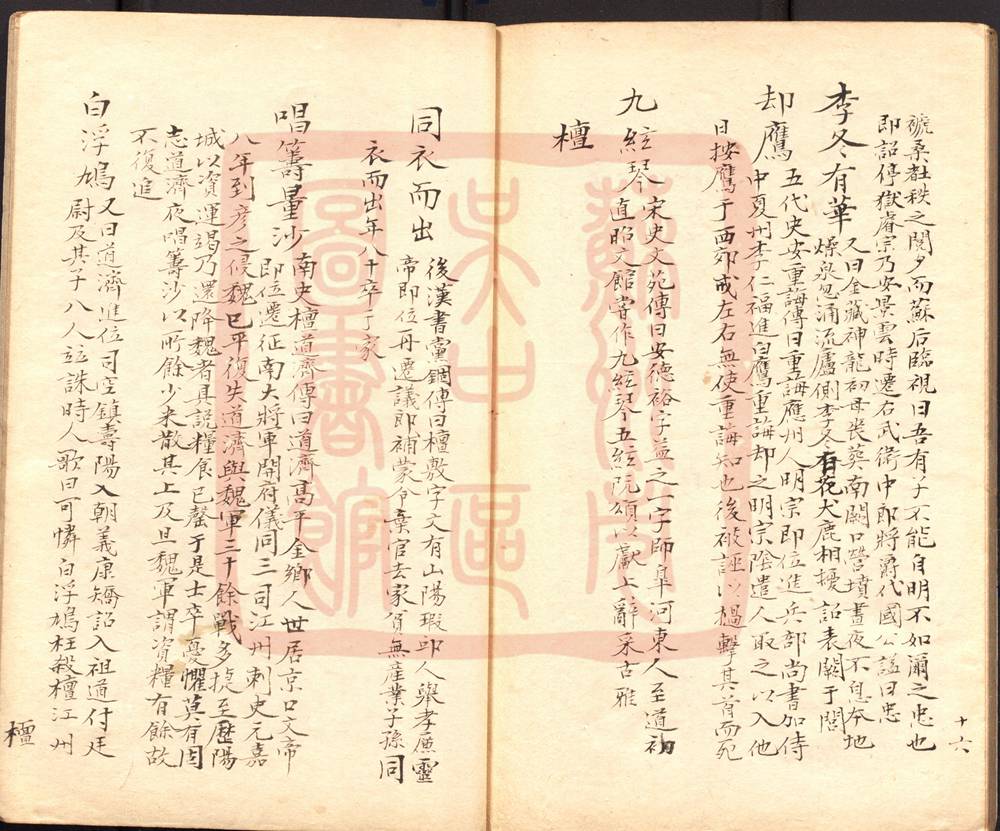 號桑社秩之閱夕而蘇后臨視曰吾有子不能自明不如爾之忠也
即詔停獄睿宗乃安景雲時遷右武衛中郎將爵代國公諡曰忠
李冬有華
又曰金藏神龍初母喪葬南闕口營墳晝夜不息本地
燥泉忽涌流廬側李冬有花犬鹿相擾詔表闕于閭
却鷹
五代史安重誨傳曰重誨應州人明宗即位進兵部尚書加侍
中夏州李仁福進白鷹重誨却之明宗陰遣人取之以入他
日按鷹于西郊戒左右無使重誨知也後 誣以檛擊其首而死
九絃琴
宋史文苑傳曰安德裕字益之一字師皋河東人至道初
直昭文館嘗作九絃琴五絃阮頌以獻上辭采古雅
檀
十六
同衣而出
後漢書黨錮傳曰檀敷字文有山陽瑕邱人舉孝廉靈
帝即位再遷議郎補蒙令棄官去家貧無產業子孫同
衣而出年八十卒于家
唱籌量沙
南史檀道濟傳曰道濟高平金鄉人世居京口文帝
即位遷征南大將軍開府儀同三司江州刺史元嘉
八年到彥之侵魏已平復失道濟與魏軍三十餘戰多捷至歷陽
城以資運竭乃還降魏者具說糧食已罄于是士卒憂懼莫有固
志道濟夜唱籌沙以所餘少米散其上及旦魏軍謂資糧有餘故
不復追
白浮鳩
又曰道濟進位司空鎮壽陽入朝義康矯詔入祖道付廷
尉及其子八人竝誅時人歌曰可憐白浮鳩枉殺檀江州
檀
圖書館